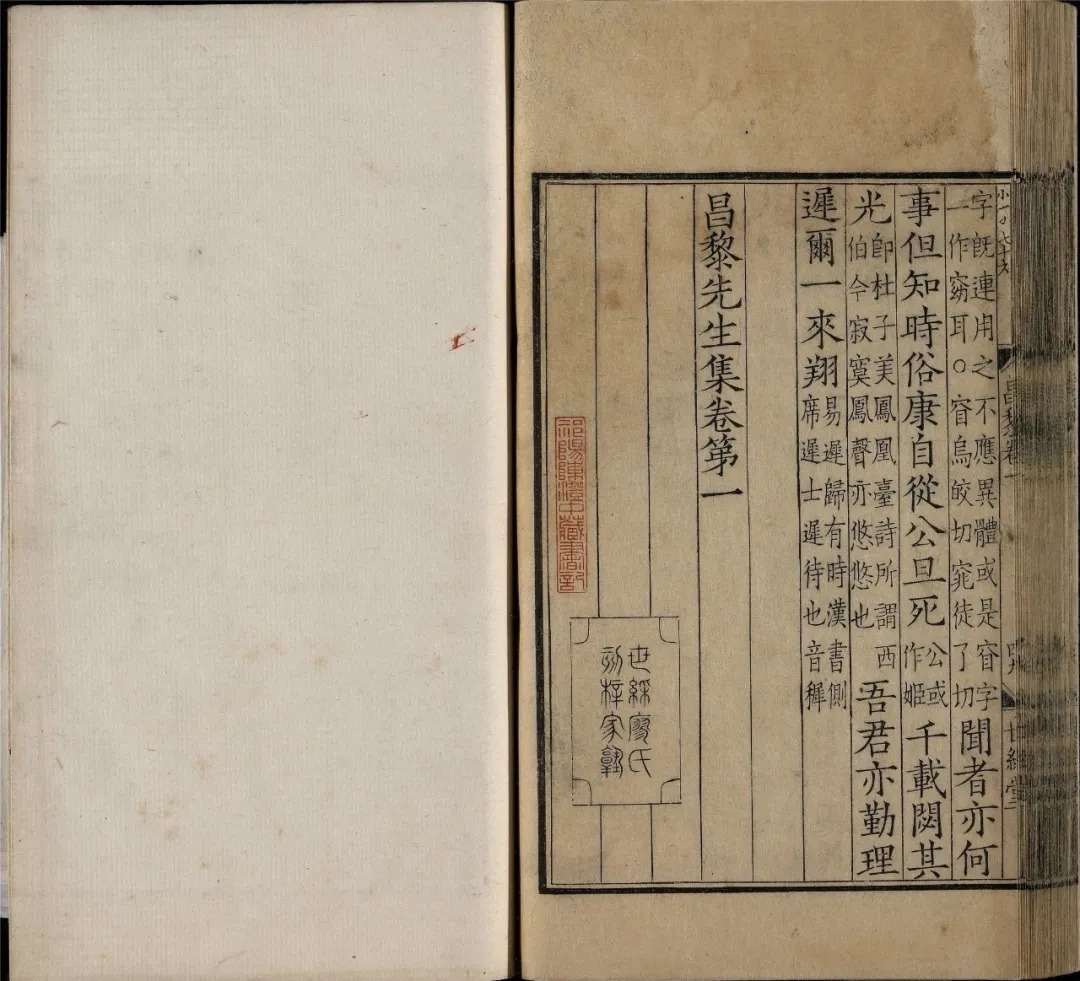 昌黎卷一
世綵堂
字既連用之不應異體或是窅字
一作窈耳○窅烏皎切窕徒了切
聞者亦何
事但知時俗康自從公旦死
公或
作姬
千載閟其
光
即杜子美鳳凰臺詩所謂西
伯今寂寞鳳聲亦悠悠也
吾君亦勤理
遲爾一來翔
易遲歸有時漢書側
席遲士遲待也音穉
昌黎先生集卷第一
世綵廖氏
刻梓家塾
祁陽陳澄中藏書記